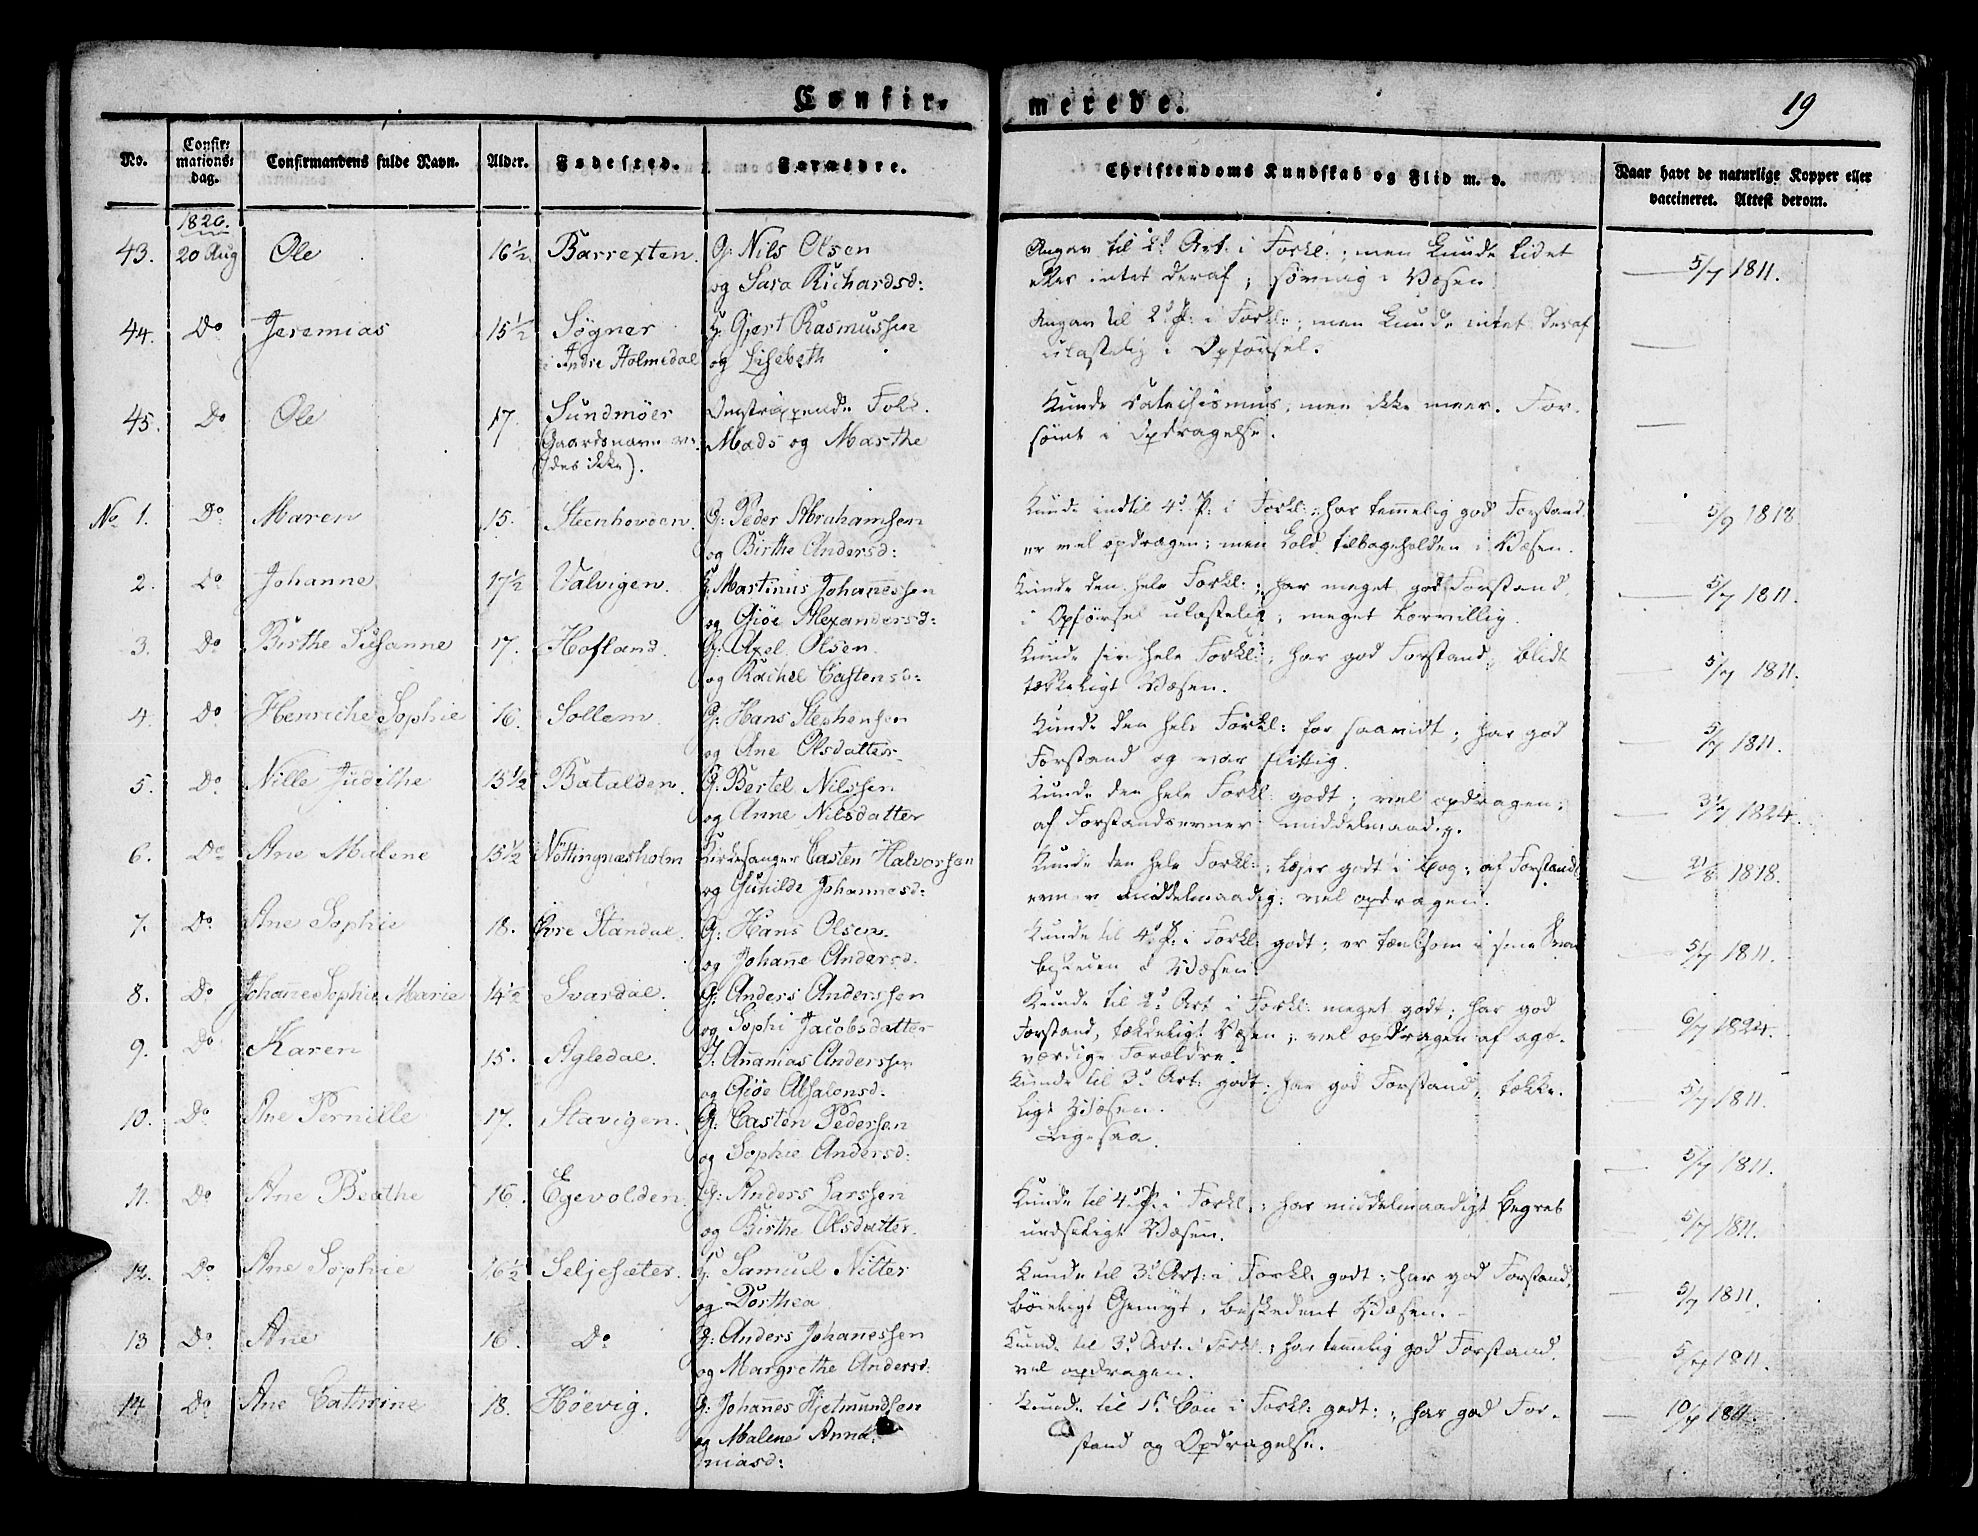 Confir-
merede.
19
No.
Confir-
mations-
dag.
Confirmandens fulde Navn.
Alder.
Fødested.
Forældre.
Christendoms Kundskab og Flid m. v.
Naar havt de naturlige Kopper eller
vaccineret. Attest derom.
1826.
43. 20 Aug Ole 16½ Barrexten. G: Nils Olsen
og Sara Richardsd:
Angav til 2d Art: i Forkl:; men kunde lidet
eller intet deraf; søvnig i Væsen.
5/7 1811.
44. Do Jeremias 15½ Søgner
i Indre Holmedal
Gjert Rasmussen
og Lisebeth
Angav til 2d P: i Forkl:; men kunde intet deraf
ulastelig i Opførsel.
45. Do Ole 17. Sundmøer
Gaardsnavn vi-
des ikke).
Omstrippende Folk.
Mads og Marthe
Kunde Catechismus, men ikke meer. For-
sømt i Opdragelse.
No 1. Do Maren 15. Steenhovden. G: Peder Abrahamsen
og Birthe Andersd:
Kunde indtil 4d P: i Forkl:; har temmelig god Forstand
er vel opdragen; men kold tilbageholden i Væsen.
5/9 1818
2. Do Johanne 17½ Valvigen. Martinus Johanessen
og Giöe Alexandersd:
Kunde den hele Forkl:; har meget god Forstand,
i Opførsel ulastelig; meget lærvillig.
5/7 1811.
3. Do Birthe Susanne 17. Hofland. G: Axel Olsen
og Rachel Castensd:
Kunde sin hele Forkl:; har god Forstand, blidt
tækkeligt Væsen.
5/7 1811.
4. Do Henriche Sophie 16. Sollem. G: Hans Stephensen
og Ane Olsdatter
Kunde den hele Forkl: for saavidt; har god
Forstand og var flittig.
5/7 1811.
5. Do Nille Judithe 15½ Batalden. G: Bertel Nilssen
og Anne Nilsdatter
Kunde den hele Forkl: godt; vel opdragen;
af Forstandsevner middelmaadig.
1824.
6. Do Ane Malene 15½ Nöttingnæsholm Kirkesanger Casten Halvorsen
og Gunilde Johannesd:
Kunde den hele Forkl:; læser godt i Bog; af Forstands
evner middelmaadig; vel opdragen.
1818.
7. Do Ane Sophie 18. Standal. G: Hans Olsen.
og Johañe Andersd.
Kunde til 4d P: i Forkl: godt; er tænksom i sine
beskeden i Væsen.
5/7 1811.
8. Do Johane Sophie Marie 14½ Svardal. G: Anders Anderssen
og Sophi Jacobsdatter
Kunde til 2d Art i Forkl: meget godt; har god
Forstand, tækkeligt Væsen; vel opdragen af agt-
værdige Forældre.
6/7 1824.
9. Do Karen 15. Agledal. Añanias Anderssen
og Giöe Absalonsd:
Kunde til 3d Art: godt; har god Forstand, tække-
ligt Væsen.
5/7 1811.
10. Do Ane Pernille 17. Stavigen. G: Casten Pedersen
og Sophie Andersd:
Ligesaa.
5/7 1811.
11. Do Ane Beathe 16. Egevolden. G: Anders Larssen
og Birthe Olsdatter.
Kunde til 4d P: i Forkl:; har middelmaadigt Begreb
undseligt Væsen.
5/7 1811.
12. Do Ane Sophie 16½ Seljesæter. Samuel Nitter
og Dorthea
Kunde til 3d Art: i Forkl: godt; har god Forstand,
böieligt Gemyt, beskedent Væsen.
5/7 1811.
13 Do Ane 16 Do G: Anders Johanessen
og Margrethe Andersd:
Kunde til 3d Art: i Forkl:; har temelig god Forstand.
vel opdragen.
5/7 1811.
14 Do Ane Cathrine 18. Höevig. G: Johañes Hjelmundsen
og Malene Anna-
niasd:
Kunde til 1st Bön i Forkl: godt; har god For-
stand og Opdragelse.
10/7 1811.